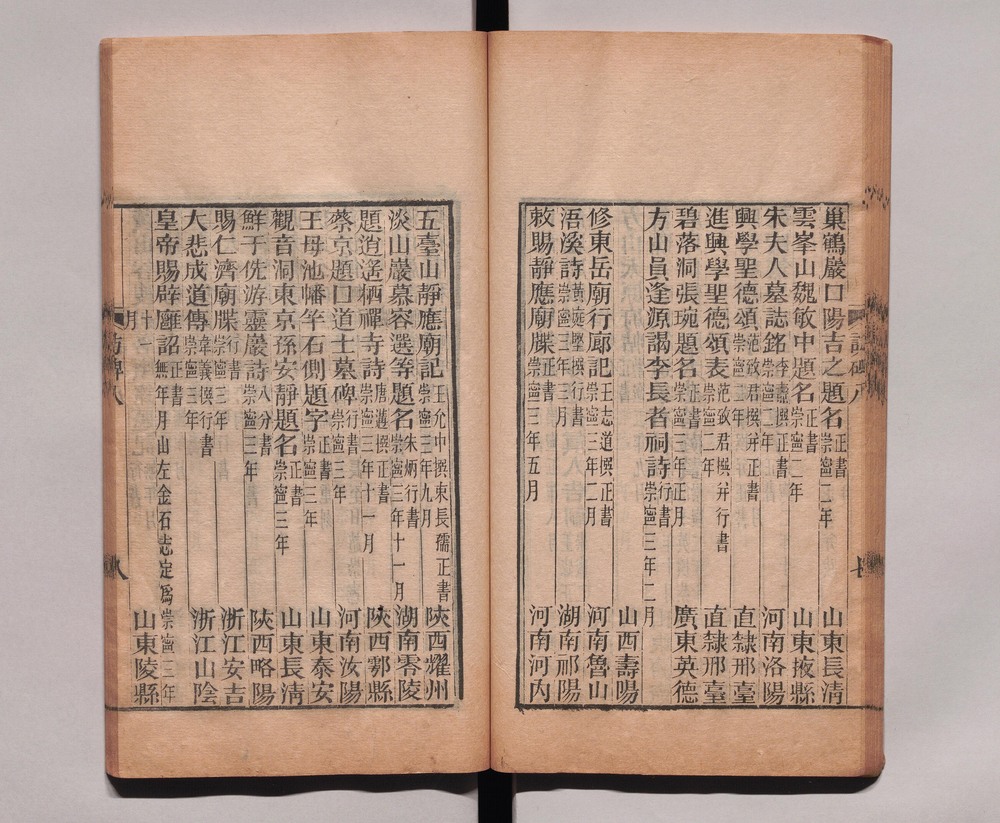 巢鶴巖口陽吉之題名 正書 崇寧二年 山東長清
雲峯山魏敏中題名 正書 崇寧二年 山東掖縣
朱夫人墓誌銘 撰正書 崇寧二年 河南洛陽
興學聖德頌 范致君撰并正書 崇寧二年 直隸邢臺
進興學聖德頌表 范致君撰并行書 崇寧二年 直隸邢臺
碧落洞張琬題名 正書 崇寧年正月 廣東英德
方山員逢源謁李長者祠詩 行書 崇寧三年二月 山西壽陽
修東岳廟行廊記 王志道撰正書 崇寧三年二月 河南魯山
浯溪詩 黃庭堅撰行書 崇寧三年三月 湖南祁陽
敕賜靜應廟牒 正書 崇寧三年五月 河南河內
五臺山靜應廟記 王允中撰東長孺正書 崇寧三年九月 陝西耀州
淡山巖慕容選等題名 朱炳行書 崇寧三年十一月 湖南零陵
題逍遙栖禪寺詩 唐遘撰正書 崇寧三年十一月 陝西鄠縣
蔡京題口道士墓碑 行書 崇寧三年 河南汝陽
王母池幡竿石側題字 正書 崇寧三年 山東泰安
觀音洞東京孫安靜題名 正書 崇寧三年 山東長清
鮮于侁游靈巖詩 八分書 崇寧三年 陝西略陽
賜仁濟廟牒 行書 崇寧三年 浙江安吉
大悲成道傳 韋義撰行書 崇寧三年 浙江山陰
皇帝賜辟廱詔 正書 無年月山左金石志定爲崇寧三年十一月 山東陵縣
訪碑八
八